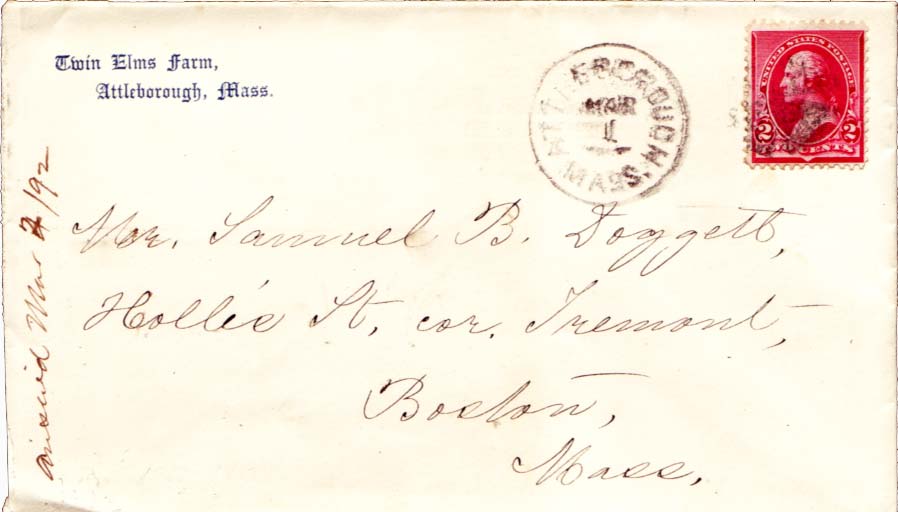 Twin Elms Farm,
Attleborough, Mass.
ATTLEBOROUGH
MAR
1
MASS.
UNITED STATES POSTAGE
2 2
CENTS
Mr. Samuel B. Doggett,
Hollis St, cor. Tremont,
Boston,
Mass,
Mar /92